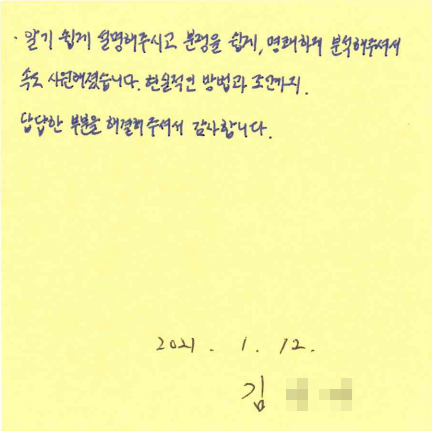 · 알기 쉽게 설명해주시고 분쟁을 쉽게, 명쾌하게 분석해주셔서
속도 시원해졌습니다. 현실적인 방법과 조언까지.
답답한 부분을 해결해주셔서 감사합니다.
2021. 1. 12.
김